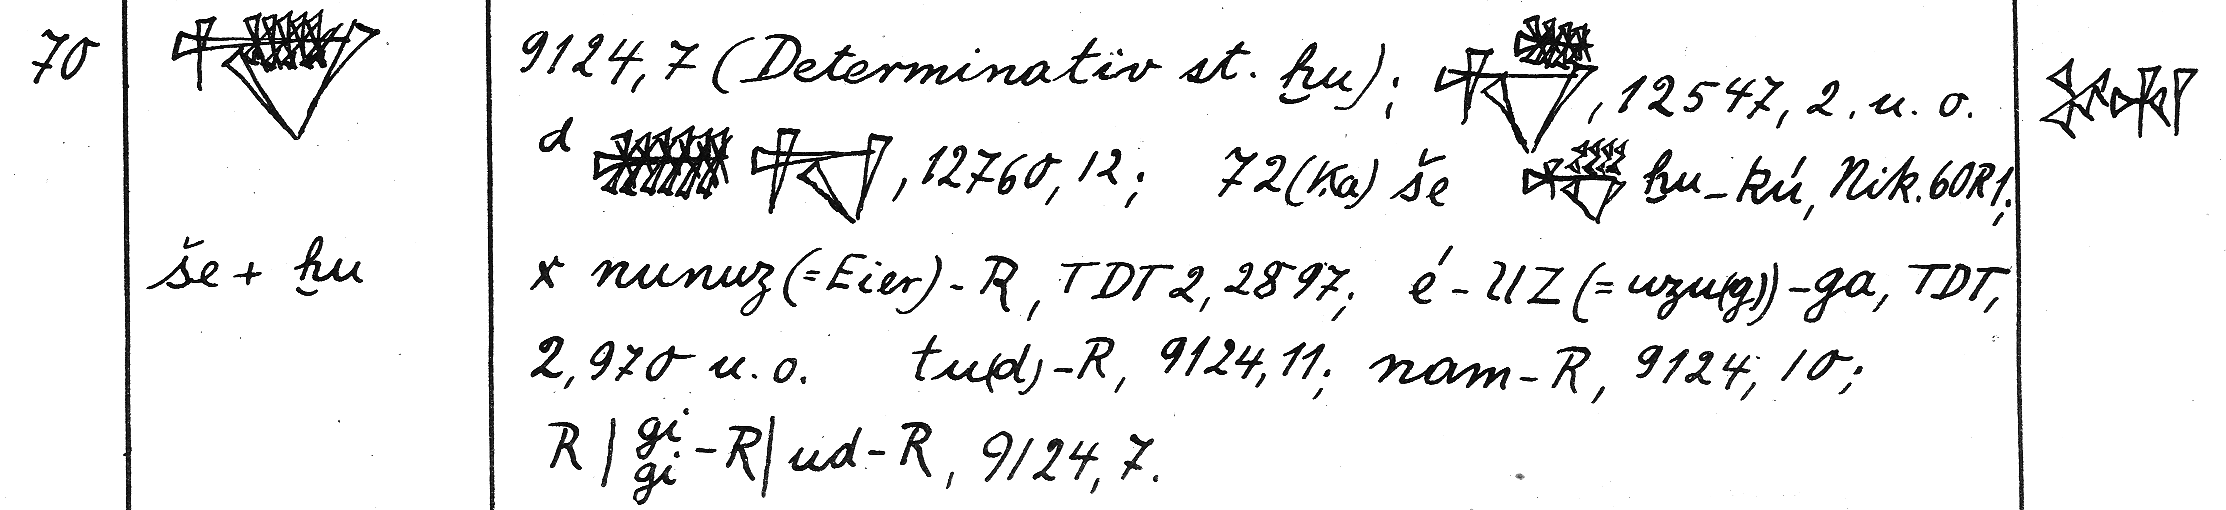 70 9124,7 (Determinativ st. ḫu); , 12547, 2. u. o.
d , 12760, 12; 72 (Ka) še ḫu-kú, Nik. 60 R 1;
še + ḫu x nunuz (= Eier) - R, TDT 2, 2897; é - UZ (= uzu(g)) - ga, TDT,
2, 970 u. o. tu(d) - R, 9124, 11; nam - R, 9124, 10;
R | gi gi - R | ud - R, 9124, 7.